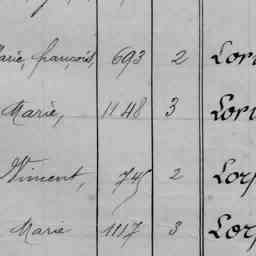 Marie, françois, 693 2 Lor
Marie, 1148 3 Lor
Vincent, 745 2 Lor
Marie 1117 3 Lor